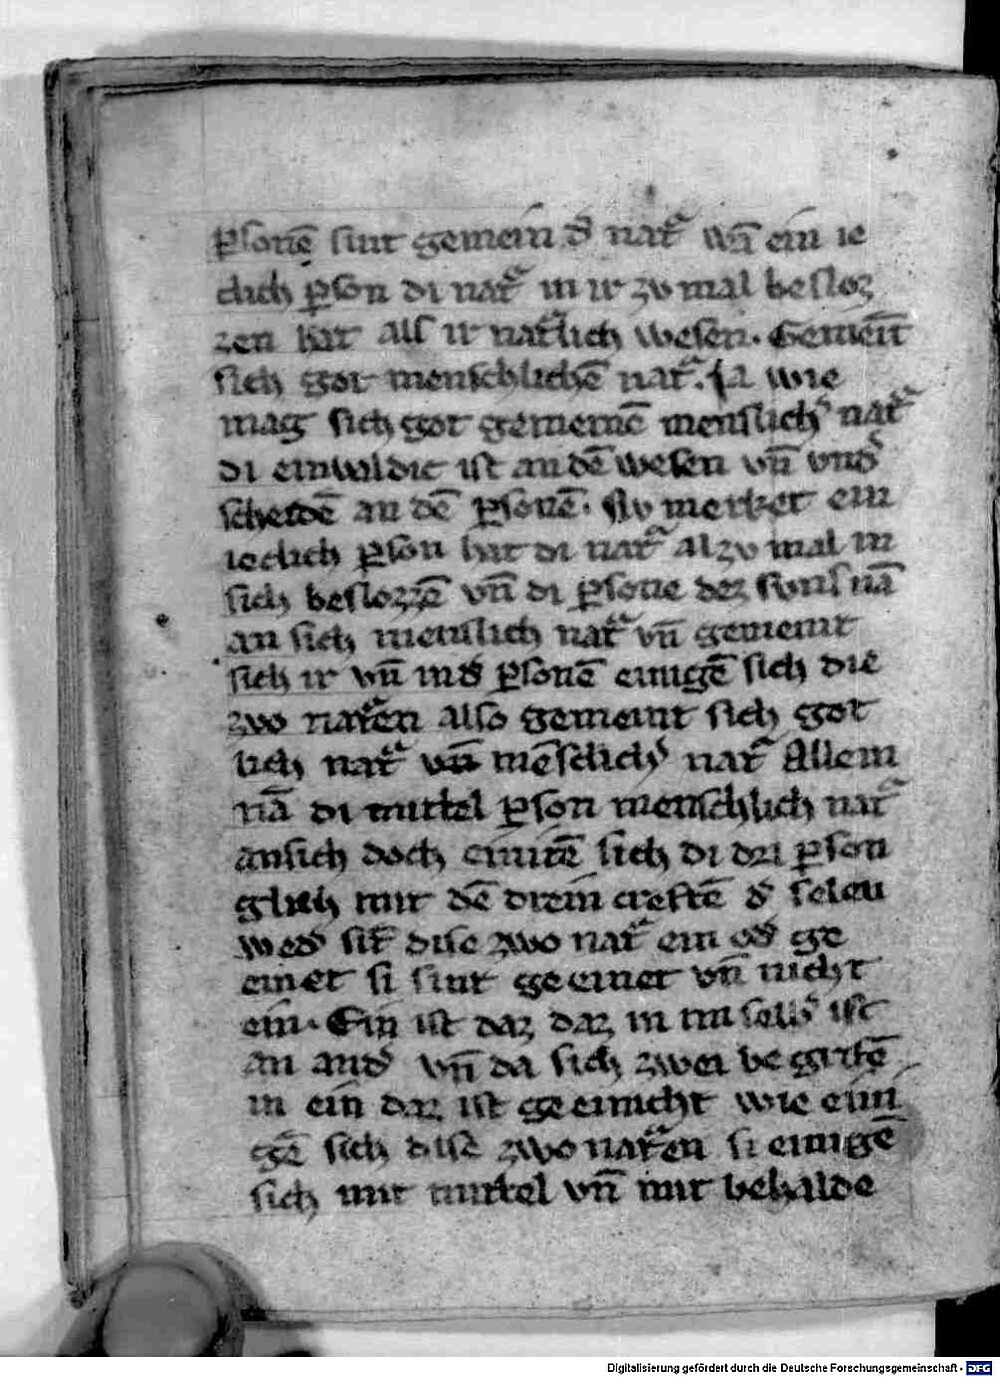 ꝑſonē ſint gemein dˀ natˀ wā ein ie
clich ꝑſon di natˀ in ir zv mal beſloz
zen hat alſ ir natˀlich weſen. Gemeīt
ſich got menſchlichē natˀ. Ja wie
mag ſich got gemeinē menſlichˀ natˀ
di einvaldic iſt an dē weſen vn̄ vndˀ
ſcheidē an dē ꝑſonē. Nv merket ein
ieclich ꝑſon hat di natˀ alzv mal in
ſich beſlozzē vn̄ di ꝑſone dez ſvnſ nā
an ſich menſlich natˀ vn̄ gemeint
ſich ir vn̄ in dˀ ꝑſonē einigē ſich die
zwo natˀen alſo gemeint ſich got
lich natˀ vn̄ mēſclichˀ natˀ Allein
nā di mittel ꝑſon menſchlich natˀ
anſich doch einitē ſich di dri ꝑſon
glich mit dē drein creftē dˀ ſelen
wedˀ ſit diſe zwo natˀ ein odˀ ge
einet ſi ſint geeinet vn̄ nicht
ein. Ein iſt daz daz in im ſelbˀ iſt
an andˀ vn̄ da ſich zwei be girtē
in ein daz iſt geeinicht wie eini
gē ſich diſe zwo natˀen ſi einigē
ſich mit mittel vn̄ mit behalde
Digitalisierung gefördert durch die Deutsche Forschungsgemeinschaft - DFG